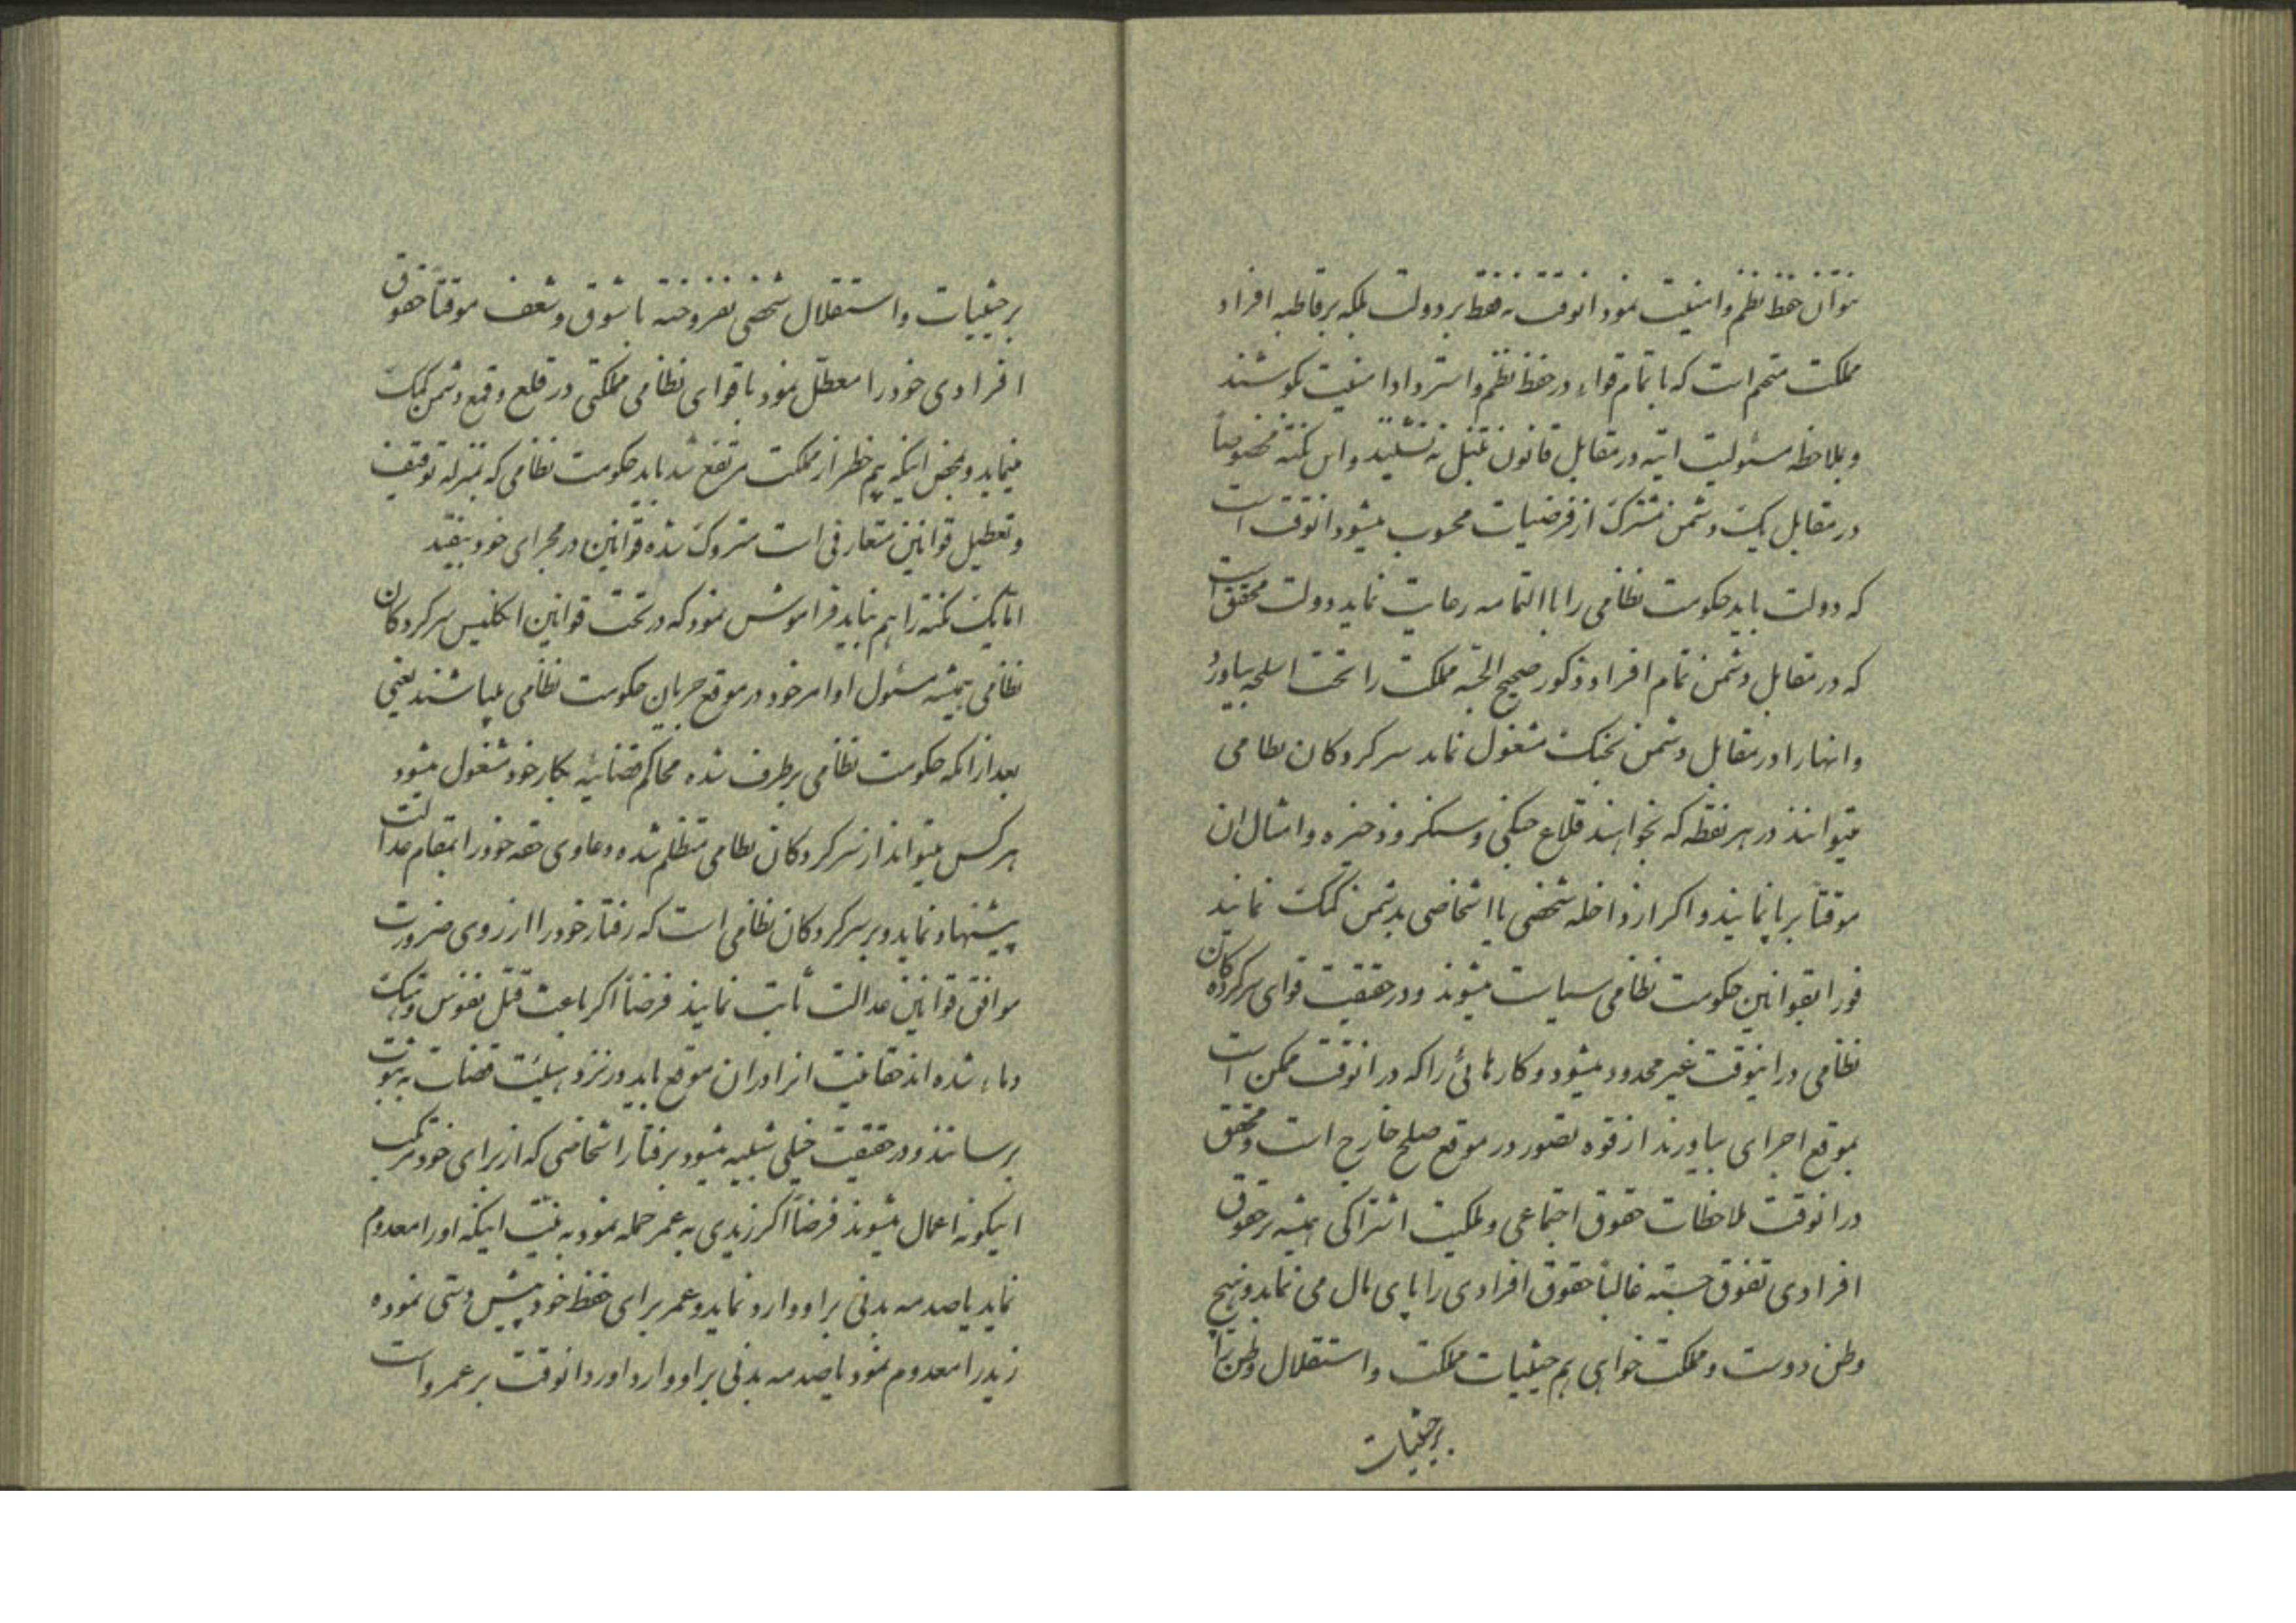 نتوان حفظ نظم و امنیت نمود انوقت نه فقط بر دولت بلکه بر قاطبه افراد
مملکت متحتم است که با تمام قواء در حفظ نظم و استرداد امنیت بکوشند
و بملاحظه مسئولیت اتیه در مقابل قانون تنبل نه نشینند و این نکته مخصوصاً
در مقابل یک دشمن مشترک از فرضیات محسوب میشود انوقت است
که دولت باید حکومت نظامی را با التمامه رعایت نماید دولت محقق است
که در مقابل دشمن تمام افراد ذکور صحیح الجثه مملکت را تحت اسلحه بیاورد
و انها را در مقابل دشمن بجنگ مشغول نماید سرکردکان نظامی
میتوانند در هر نقطه که بخواهند قلاع جنکی و سنکر و ذخیره و امثال ان
موقتاً برپا نمایند و اکر از داخله شخصی یا اشخاصی بدشمن کمک نمایند
فورا بقوانین حکومت نظامی سیاست میشوند و در حقیقت قوای سرکرده کان
نظامی در اینوقت غیر محدود میشود و کارهائی را که در انوقت ممکن است
بموقع اجرای بیاورند از قوه تصور در موقع صلح خارج است و محقق
در انوقت ملاحظات حقوق اجتماعی و ملکیت اشتراکی همیشه بر حقوق
افرادی تفوق جسته غالباً حقوق افرادی را پای مال می نماید و هیچ
وطن دوست و مملکت خواهی هم حیثیات مملکت و استقلال وطن را
بر حیثیات
بر حیثیات و استقلال شخصی نفروخته با شوق و شعف موقتاً حقوق
افرادی خود را معطل نمود با قوای نظامی مملکتی در قلع و قمع دشمن کمک
مینماید و بمحض اینکه بیم خطر از مملکت مرتفع شد باید حکومت نظامی که بمنزله توقیف
و تعطیل قوانین متعارفی است متروک شده قوانین در مجرای خود بیفتد
اما یک نکته را هم نباید فراموش نمود که در تحت قوانین انکلیس سرکردکان
نظامی همیشه مسئول اوامر خود در موقع جریان حکومت نظامی میباشند یعنی
بعد از انکه حکومت نظامی برطرف شده محاکم قضائیه بکار خود مشغول میشود
هر کس میتواند از سرکردکان نظامی متظلم شده دعاوی حقه خود را بمقام عدالت
پیشنهاد نماید و بر سرکردکان نظامی است که رفتار خود را از روی ضرورت
موافق قوانین عدالت ثابت نمایند فرضاً اکر باعث قتل نفوس و هتک
دماء شده اند حقانیت انرا در ان موقع باید در نزد هیئت قضات به ثبوت
برسانند و در حقیقت خیلی شبیه میشود برفتار اشخاصی که از برای خود مرتکب
اینکونه اعمال میشوند فرضاً اکر زیدی به عمر حمله نمود به نیت اینکه او را معدوم
نماید یا صدمه بدنی بر او وارد نماید و عمر برای حفظ خود پیش دستی نموده
زید را معدوم نمود یا صدمه بدنی بر او وارد اورد انوقت بر عمر است